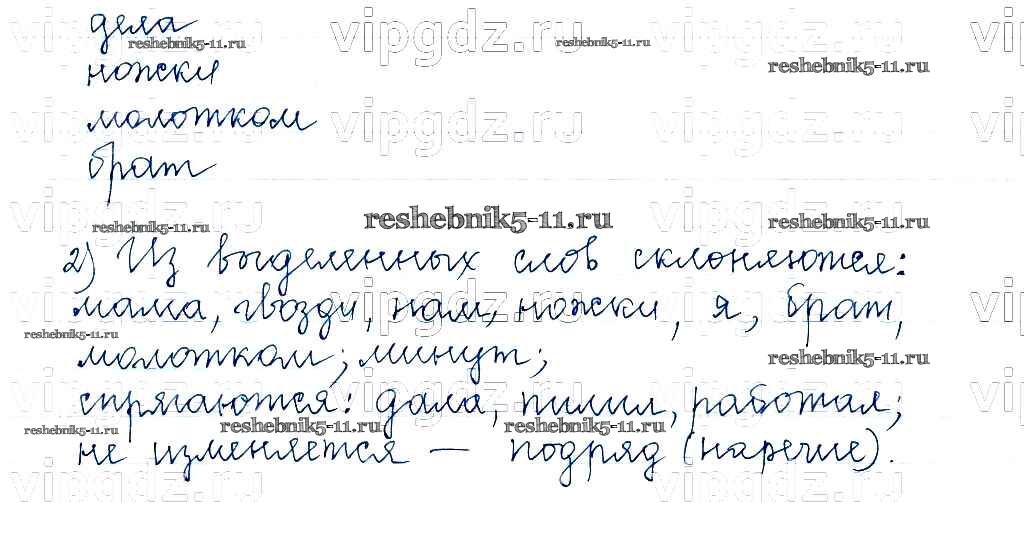 дела
ножски
молотком
брат
2) Из выделенных слов склоняются:
мама, гвозди, нам, ножски, я, брат,
молотком; минут;
спрягаются: дала, пилил, работал;
не изменяется — подряд (наречие).
vipgdz.ru
reshebnik5-11.ru